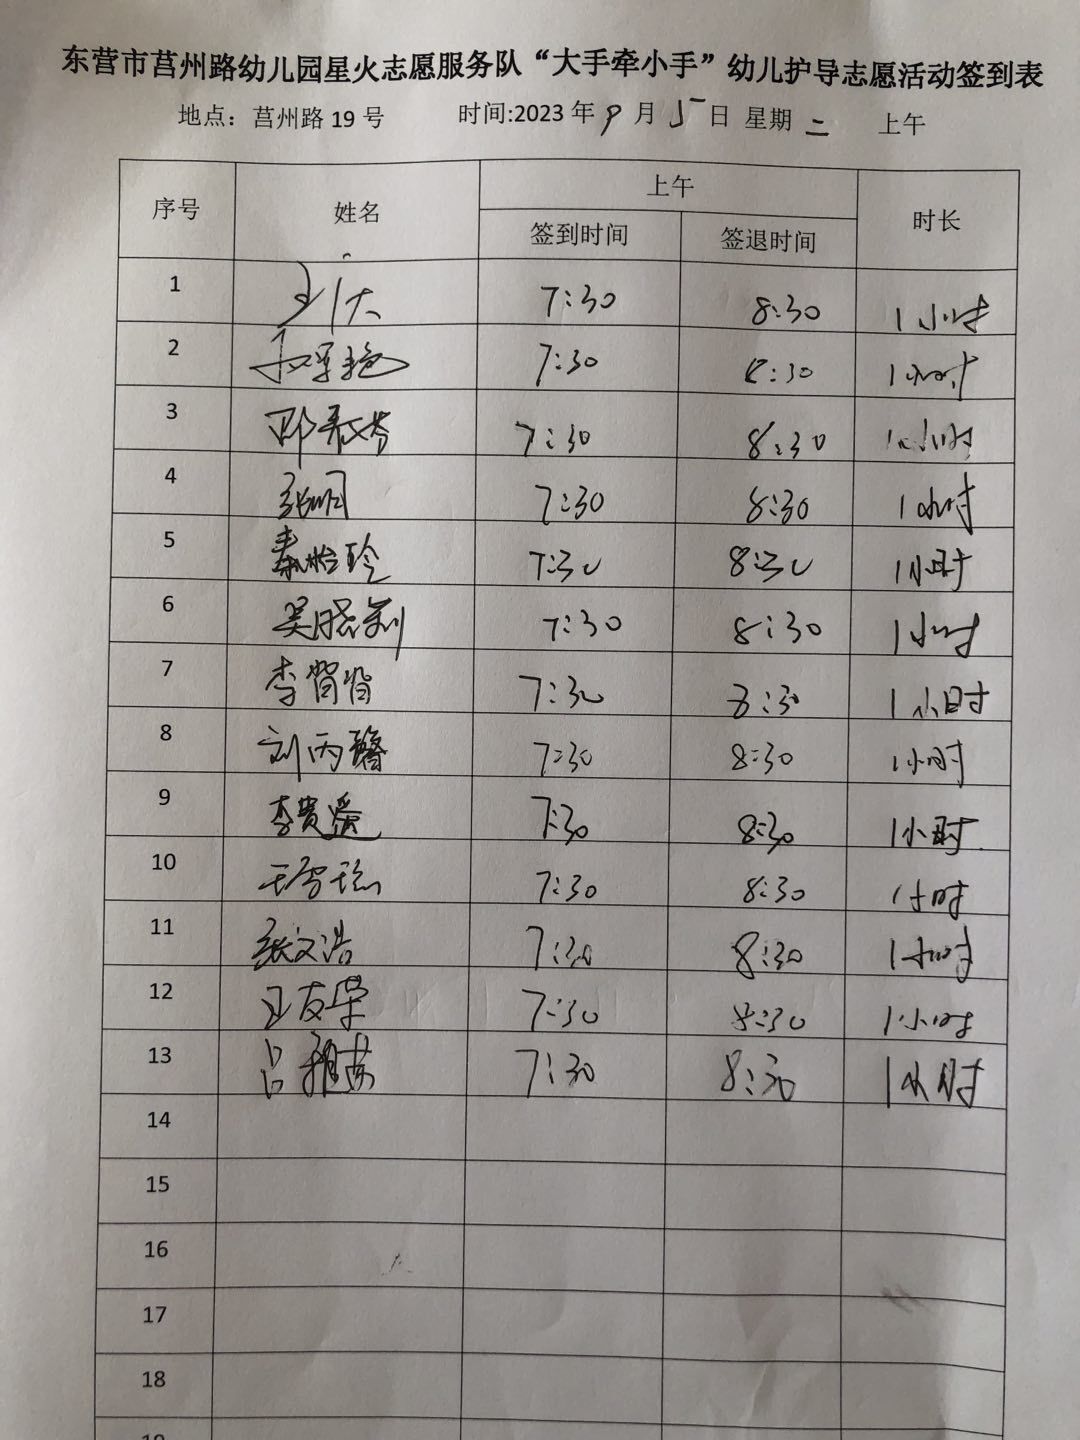 东营市莒州路幼儿园星火志愿服务队“大手牵小手”幼儿护导志愿活动签到表
地点：莒州路19号 时间:2023年9月5日 星期二 上午
序号 姓名 上午 时长
签到时间 签退时间
1 7:30 8:30 1小时
2 7:30 8:30 1小时
3 7:30 8:30 1小时
4 7:30 8:30 1小时
5 秦怡玲 7:30 8:30 1小时
6 吴晓莉 7:30 8:30 1小时
7 李背背 7:30 8:30 1小时
8 刘丙 7:30 8:30 1小时
9 李贵 7:30 8:30 1小时
10 王雪 7:30 8:30 1小时
11 张文浩 7:30 8:30 1小时
12 王友荣 7:30 8:30 1小时
13 吕雅茹 7:30 8:30 1小时
14
15
16
17
18